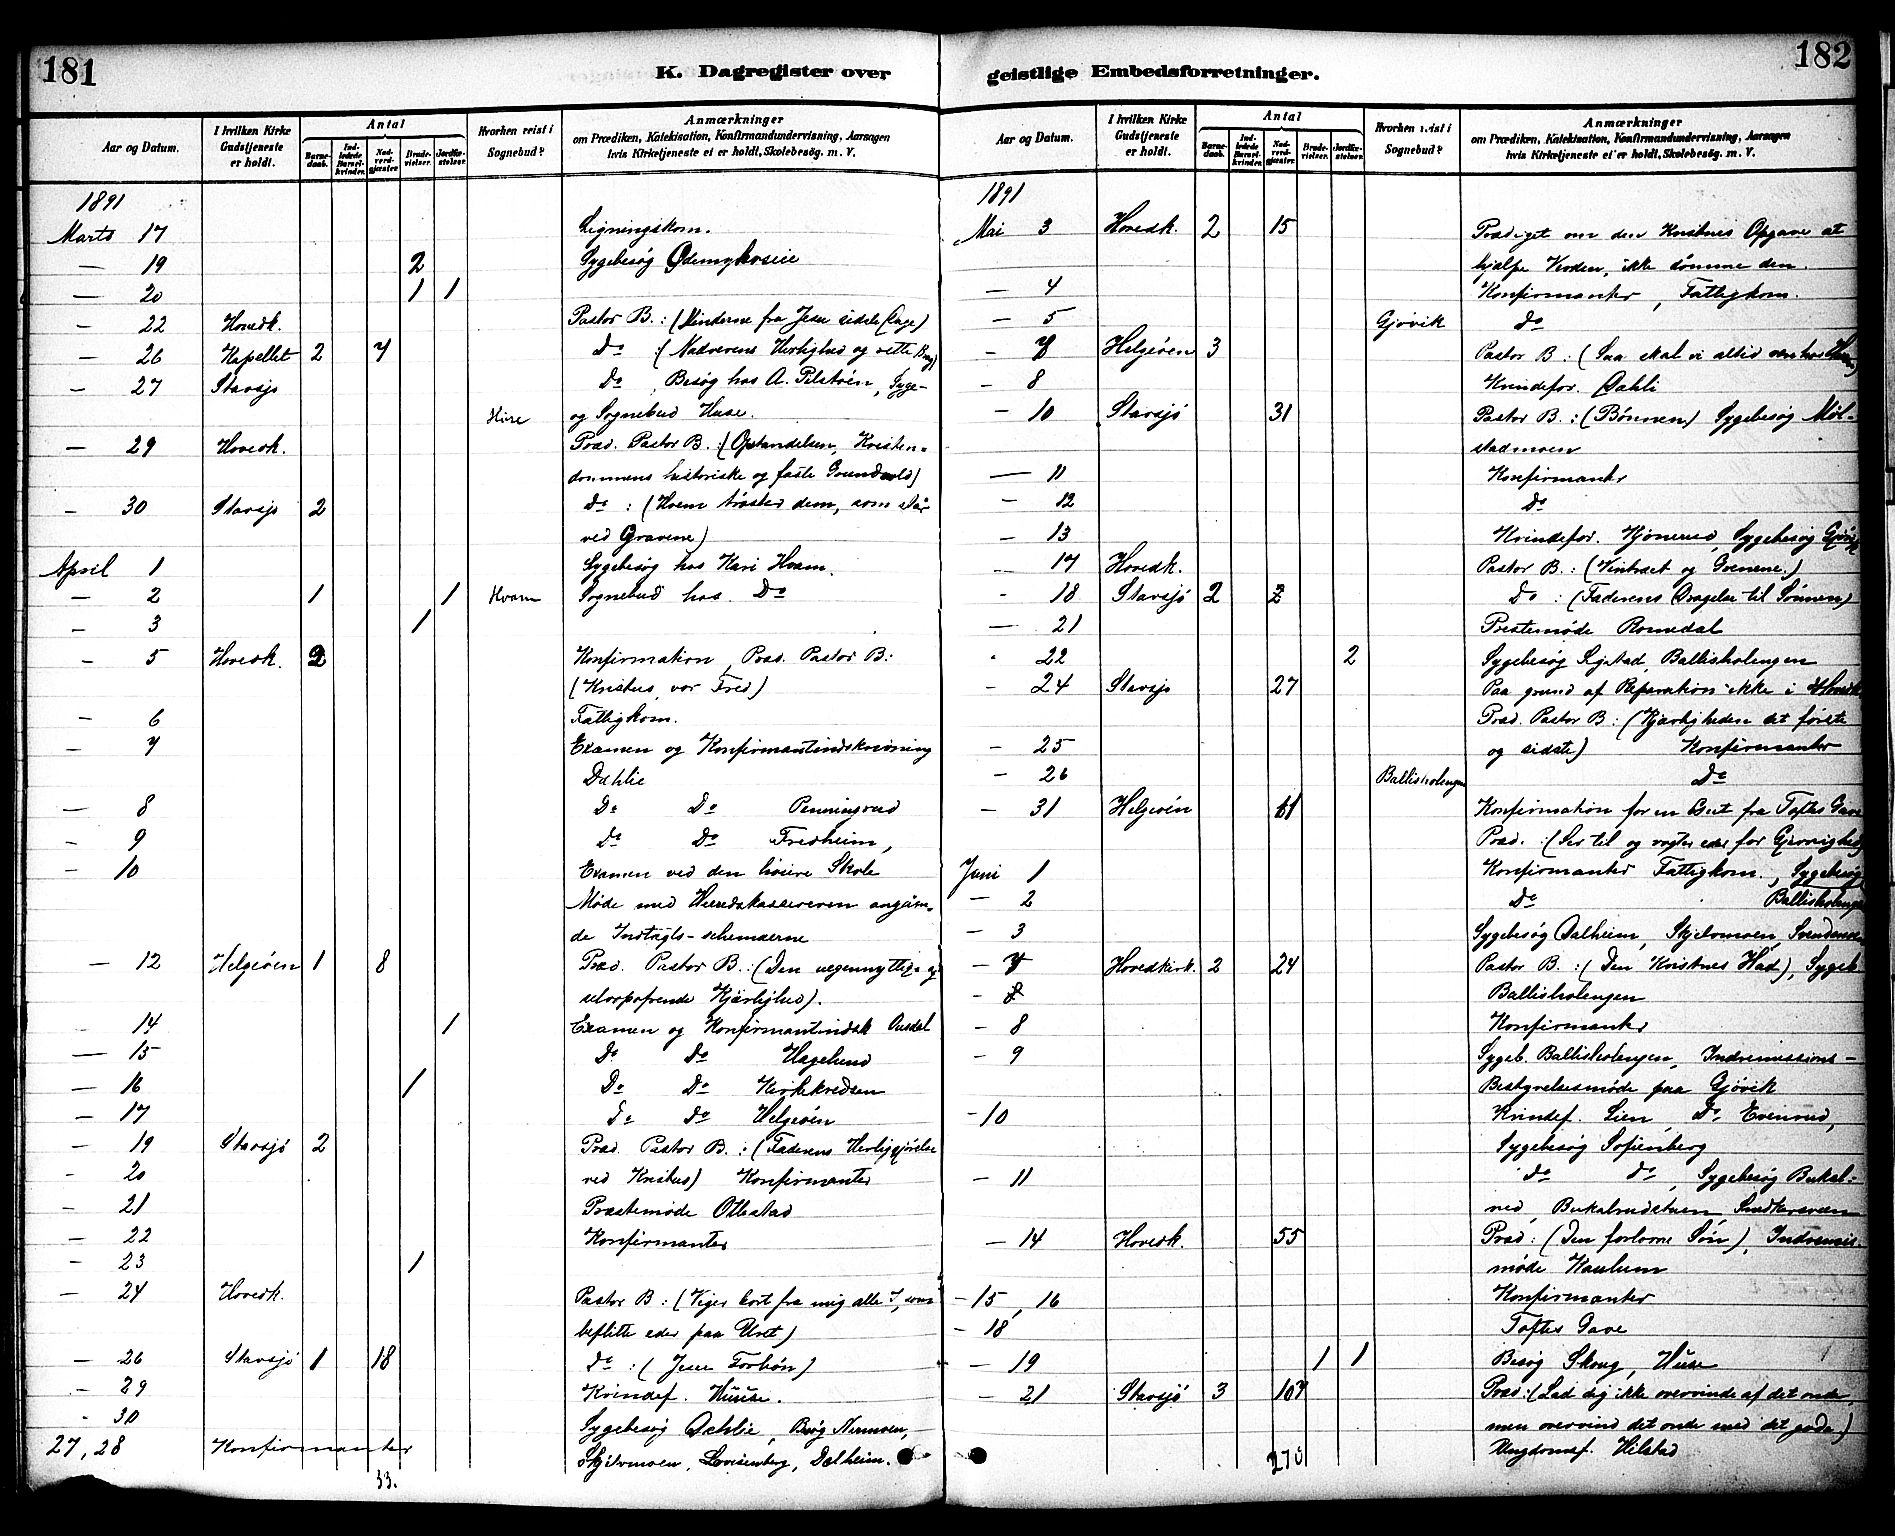 181
K. Dagregister over
Aar og Datum.
I hvilken Kirke Gudstjeneste er holdt.
Antal
Barnedaab.
Indledede Barselkvinder.
Nadverdgjæster.
Brudevielser.
Jordfæstelser.
Hvorhen reist i Sognebud?
Anmærkninger
om Prædiken, Katekisation, Konfirmandundervisning, Aarsagen
hvis Kirketjeneste ei er holdt, Skolebesøg. m. V.
1891
Marts 17 Ligningskom.
— 19 2 Sygebesøg Ødemykoseie
— 20 1 1
— 22 Hovedk. Pastor B.: (Minderne fra Jesu sidste Dage)
— 26 Kapellet 2 7 Do : (Nadverens Herlighed og rette Brug)
— 27 Stavsjø Do, Besøg hos A. Pilstøen, Syge-
Huse og Sognebud Huse.
— 29 Hovedk. Præd. Pastor B.: (Opstandelsen, Kristen-
dommens historiske og faste Grundvold)
— 30 Stavsjø 2 Do : (Hvem trøster dem, som står
ved Gravene)
April 1 Sygebesøg hos Kari Hvam.
— 2 1 1 Hvam Sognebud hos Do
— 3 1
— 5 Hovedk. 2 Konfirmation, Præd. Pastor B:
(Kristus, vor Fred)
— 6 Fattigkom.
— 7 Examen og Konfirmantindskrivning
Dahlie
— 8 Do Do Penningsrud
— 9 Do Do Fredheim,
— 10 Examen ved den høiere Skole
Møde med Herredskassereren angåen-
de Indtægts-schemaerne
— 12 Helgeøen 1 8 Præd. Pastor B.: (Den uegennyttige og
selvopofrende Kjærlighed).
— 14 1 Examen og Konfirmantindsk Ausdal
— 15 Do Do Hagelund
— 16 1 Do Do Kirkekredsen
— 17 Do Do Helgeøen
— 19 Stavsjø 2 Præd. Pastor B.: (Faderens Herliggjørelse
— 20 ved Kristus) Konfirmanter
— 21 Præstemøde Ottestad
— 22 Konfirmanter
— 23 1
— 24 Hovedk. Pastor B: (Viger bort fra mig alle I, som
beflitte eder paa Uret)
— 26 Stavsjø 1 18 Do : (Jesu Forbøn)
— 29 Kvindef. Huuse.
— 30 Sygebesøg Dehlie, Besøg Nermoen,
27, 28 Konfirmanter Skjelvmoen, Lovisenberg, Dalheim.
33.
182
geistlige Embedsforretninger.
Aar og Datum.
I hvilken Kirke Gudstjeneste er holdt.
Antal
Barnedaab.
Indledede Barselkvinder.
Nadverdgjæster.
Brudevielser.
Jordfæstelser.
Hvorhen reist i Sognebud?
Anmærkninger
om Prædiken, Katekisation, Konfirmandundervisning, Aarsagen
hvis Kirketjeneste ei er holdt, Skolebesøg. m. V.
1891
Mai 3 Hovedk. 2 15 Prædiget om den Kristnes Opgave at
hjælpe Verden, ikke dømme den.
— 4 Konfirmanter, Fattigkom.
— 5 Gjøvik Do
— 7 Helgeøen 3 Pastor B: (Saa skal vi altid være hos Herren)
— 8 Kvindefor. Dahli
— 10 Stavsjø 31 Pastor B.: (Bønnen) Sygebesøg Møl-
stadmoen
— 11 Konfirmanter
— 12 Do
— 13 Kvindefor. Kjønerud, Sygebesøg Gjøvik
— 17 Hovedk. Pastor B.: (Vintræet og Grenene.)
— 18 Stavsjø 2 2 Do : (Faderens Dragelse til Sønnen)
— 21 Prestemøde Romedal
— 22 2 Sygebesøg Sjistad, Ballisholengen
— 24 Stavsjø 27 Paa grund af Reparation ikke i Hovedk.
Præd. Pastor B: (Kjærligheden det første
— 25 og sidste) Konfirmanter
— 26 Ballisholengen Do
— 31 Helgeøen 61 Konfirmation for en Gut fra Toftes Gave
Præd.: (Ser til og vogter eder for Gjerrighed)
Juni 1 Konfirmanter Fattigkom., Sygebesøg
— 2 Do Ballisholengen
— 3 Sygebesøg Dalheim, Skjelvmoen, Svendsen
— 7 Hovedkirk. 2 24 Pastor B.: (Den Kristnes Had), Sygeb.
— 8 Ballisholengen
— 8 Konfirmanter
— 9 Sygeb. Ballisholengen, Indremissions-
Bestyrelsesmøde paa Gjøvik
— 10 Kvindef. Lien, Do. Evenrud,
Sygebesøg Sofienberg
— 11 do do, Sygebesøg Bukal-
rud, Bukalrudstuen, Snedkersveen
— 14 Hovedk. 55 Præd: (Den forlorne Søn), Indremis.
møde Kaulum
— 15, 16 Konfirmanter
— 18 Toftes Gave
— 19 1 1 Besøg Skoug, Huse
— 21 Stavsjø 3 107 Præd: (Lad dig ikke overvinde af det onde,
men overvind det onde med det gode)
270 Ungdomsf. Hilstad